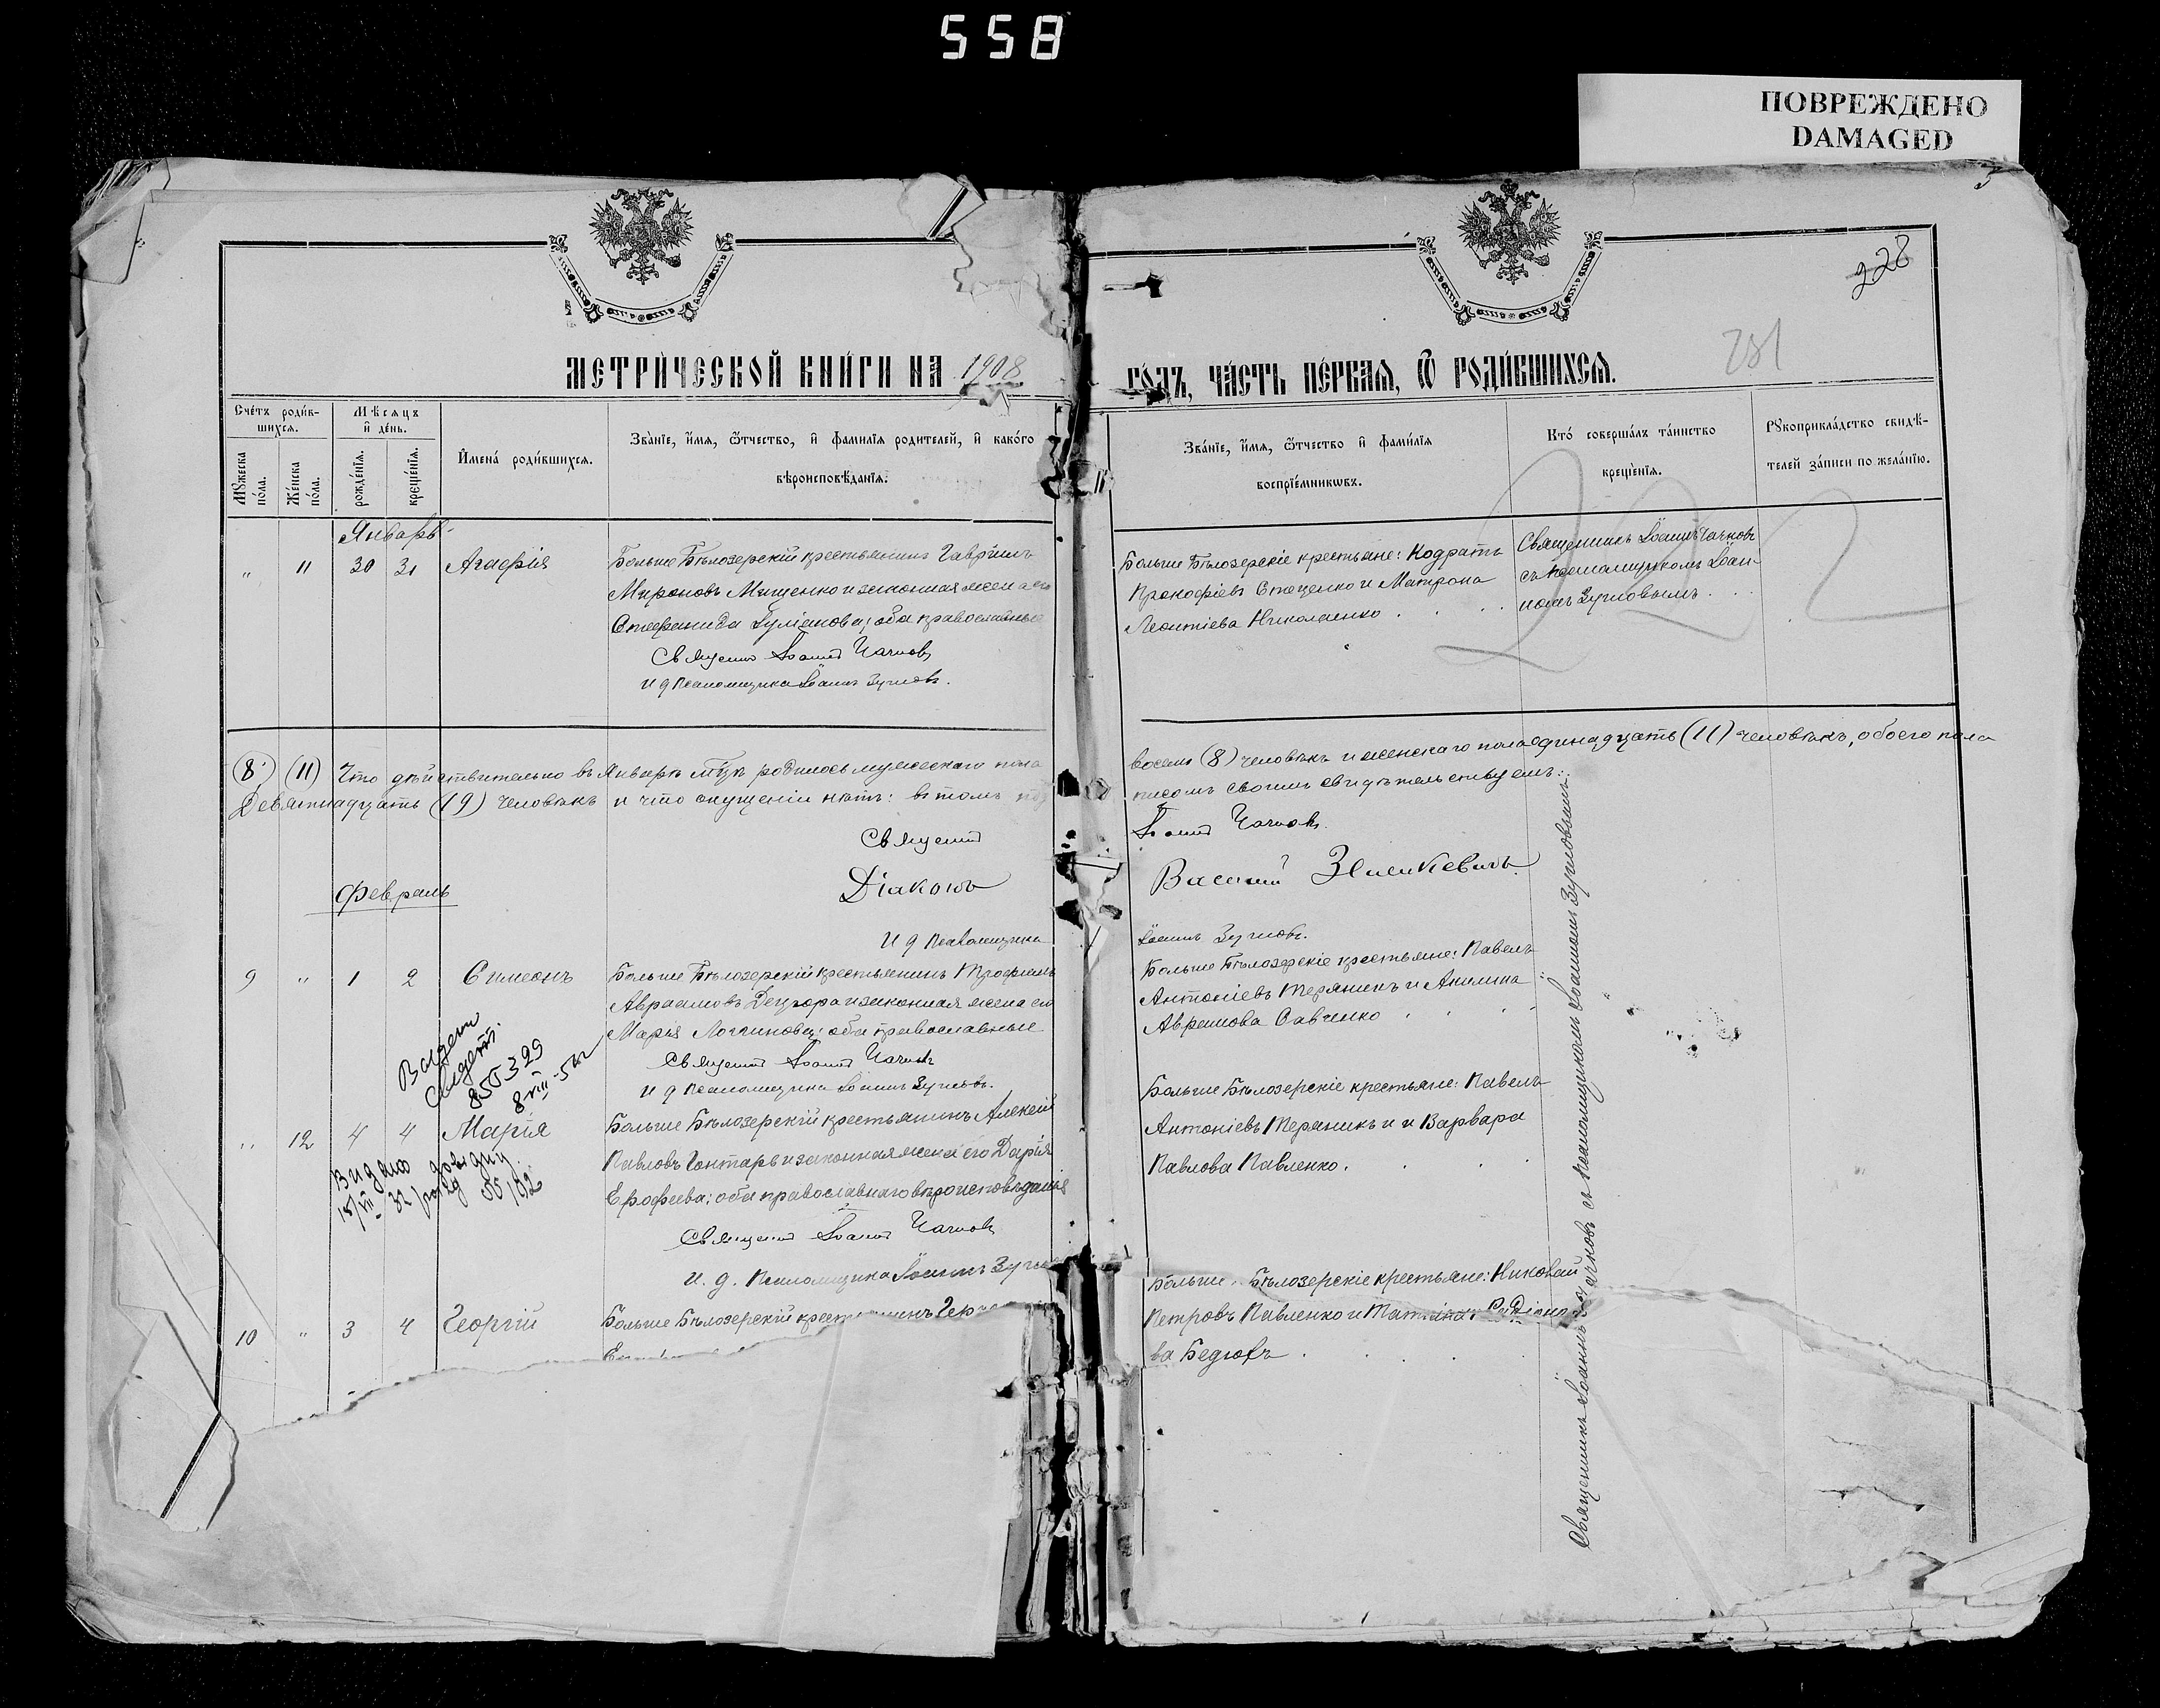 558
ПОВРЕЖДЕНО
DAMAGED
228
281
МЕТРИ́ЧЕСКОЙ КНИ́ГИ НА 1908
ГО́ДЪ, ЧА́СТЬ ПЕ́РВАЯ, Ѿ РОДИ́ВШИХСЯ.
Сче́тъ роди́в-
шихся.
Мѣ́сяцъ
и҆ де́нь.
Мꙋ́жеска
по́ла.
Же́нска
по́ла.
рожде́нїѧ.
креще́нїѧ.
И҆мена̀ роди́вшихся.
Зва́нїе, и҆́мѧ, ѻ҆́тчество, и҆ фами́лїѧ родителей, и҆ како́го
вѣроисповѣ́данїѧ.
Зва́нїе, и҆́мѧ, ѻ҆́тчество и҆ фами́лїѧ
воспрїе́мникѡвъ.
Кто̀ соверша́лъ та́инство
креще́нїѧ.
Рꙋкоприкла́дство свидѣ́-
телей за́писи по жела́нїю.
232
Январь
" 11 30 31 Агафія
Больше Бѣлозерскій крестьянинъ Гавріилъ
Мироновъ Мищенко и законная жена его
Стефанида Іуліанова; оба православные
Священникъ Іоаннъ Чачковъ
И д псаломщика Іоаннъ Зугновъ.
Больше Бѣлозерскіе крестьяне: Кодратъ
Прокофіевъ Стеценко и Матрона
Леонтіева Николаенко
Священникъ Іоаннъ Чачковъ
съ псаломщикомъ Іоан-
номъ Зугновымъ
(8) (11) Что дѣйствительно въ Январѣ мцѣ родилось мужескаго пола
восемь (8) человѣкъ и женскаго пола одинадцать (11) человѣкъ, обоего пола
Девятнадцать (19) человѣкъ и что опущеніи нѣтъ: въ томъ
писомъ своимъ свидѣтельствуемъ:
Священникъ
Іоаннъ Чачковъ.
Діаконъ
Василій
Февраль
И д псаломщика
Іоаннъ Зугновъ.
9 " 1 2 Симеонъ
Больше Бѣлозерскій крестьянинъ Трофимъ
Авраамовъ Децюра и законная жена его
Марія Логгинова; оба православные
Священникъ Іоаннъ Чачковъ
И д псаломщика Іоаннъ Зугновъ.
Больше Бѣлозерскіе крестьяне: Павелъ
Антоніевъ Теряникъ и Акилина
Аврамова Савченко
850329
" 12 4 4 Марія
Видано
Больше Бѣлозерскій крестьянинъ Алексій
Павловъ Гонтарь и законная жена его Дарія
Ерофеева; оба православнаго вѣроисповѣданія
Священникъ Іоаннъ Чачковъ
И. д. Псаломщика Іоаннъ
Больше Бѣлозерскіе крестьяне: Павелъ
Антоніевъ Теряникъ и и Варвара
Павлова Павленко.
10 " 3 4 Георгій
Больше Бѣлозерскій
Больше Бѣлозерскіе крестьяне: Николай
Петровъ Павленко и Татіана Родіоно-
ва Бедюхъ
Священникъ Іоаннъ Чачковъ съ псаломщикомъ Іоанномъ Зугновымъ.